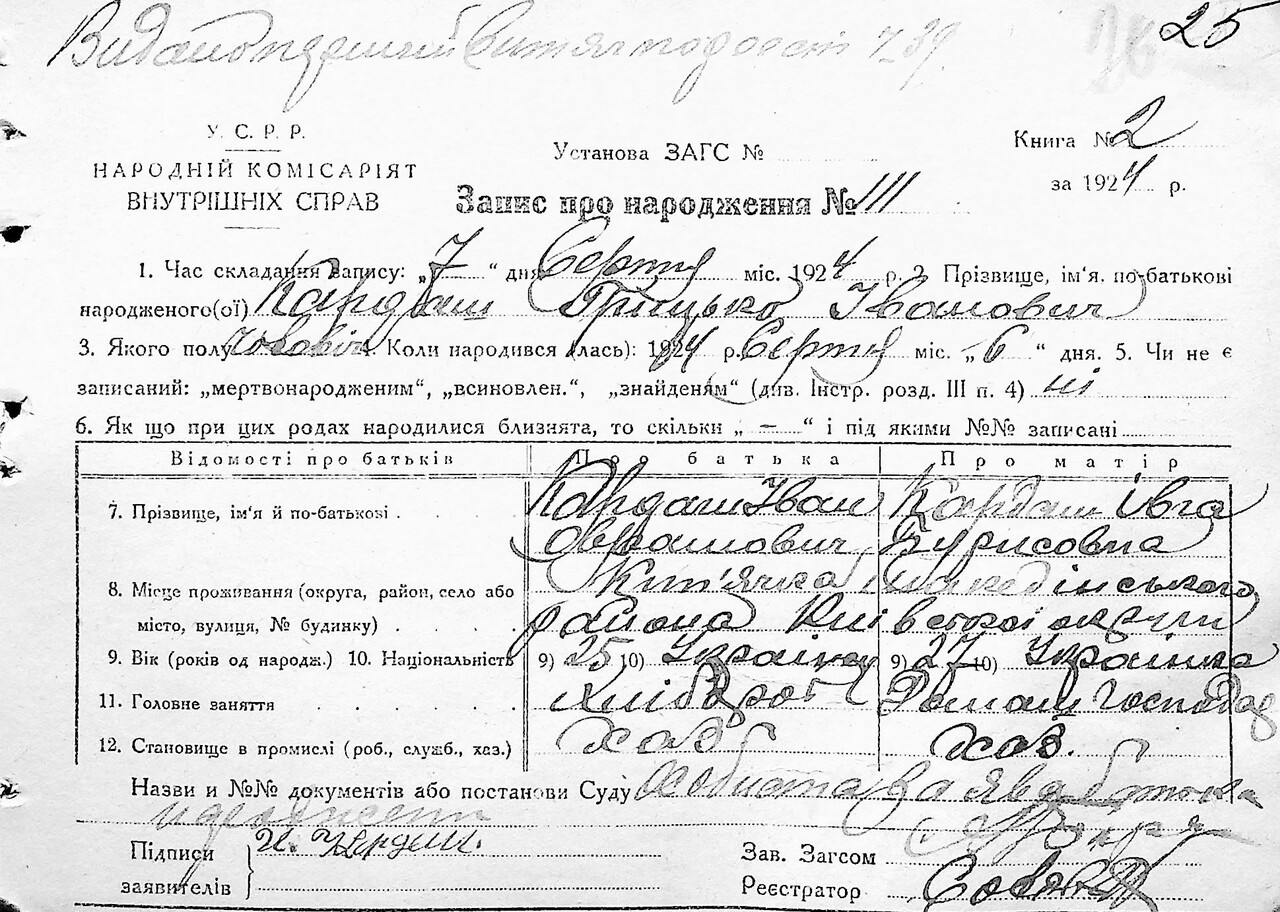 25
У. С. Р. Р.
НАРОДНІЙ КОМІСАРІЯТ
ВНУТРІШНІХ СПРАВ
Установа ЗАГС №
Книга № 2
за 1924 р.
Запис про народження № 111
1. Час складання запису: „7“ дня Серпня міс. 1924 р. 2. Прізвище, ім'я, по-батькові
народженого(ої) Кардаш Грицько Іванович
3. Якого полу Чоловіч. 4. Коли народився (лась): 1924 р. Серпня міс. „6“ дня. 5. Чи не є
записаний: „мертвонародженим“, „всиновлен.“, „знайденям“ (див. Інстр. розд. III п. 4) ні
6. Як що при цих родах народилися близнята, то скільки „ – “ і під якими №№ записані
Відомості про батьків Про батька Про матір
7. Прізвище, ім'я й по-батькові Кардаш Іван Кардаш Івга
Аврамович Бурисовна
8. Місце проживання (округа, район, село або
місто, вулиця, № будинку) района Київської округи
9. Вік (років од народж.) 10. Національність 9) 25 10) Українец 9) 27 10) Українка
11. Головне заняття Хлібороб Домаш Господар
12. Становище в промислі (роб., служб., хаз.) хаз хаз.
Назви и №№ документів або постанови Суду Особиста заява батька
Підписи
заявителів
И. Кардаш.
Зав. Загсом
Реєстратор